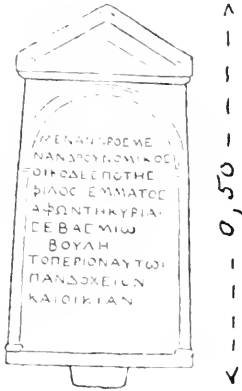 ΜΕΝΑΝΔΡΟΣΜΕ
ΝΑΝΔΡΟΥΝΟΜΙΚΟΣ
ΟΙΚΟΔΕΣΠΟΤΗΣ
ΦΙΛΟΣ ΕΜΜΑΤΟΣ
ΑΦΩΝΤΗΚΥΡΙΑ
ΣΕΒΑΣΜΙΩ
ΒΟΥΛΗ
ΤΟΠΕΡΙΟΝΑΥΤΩΙ
ΠΑΝΔΟΧΕΙΟΝ
ΚΑΙΟΙΚΙΑΝ
0,50